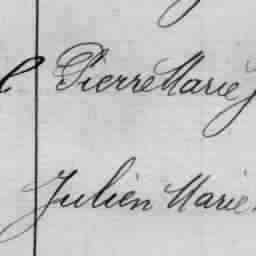 Pierre Marie J
Julien Marie